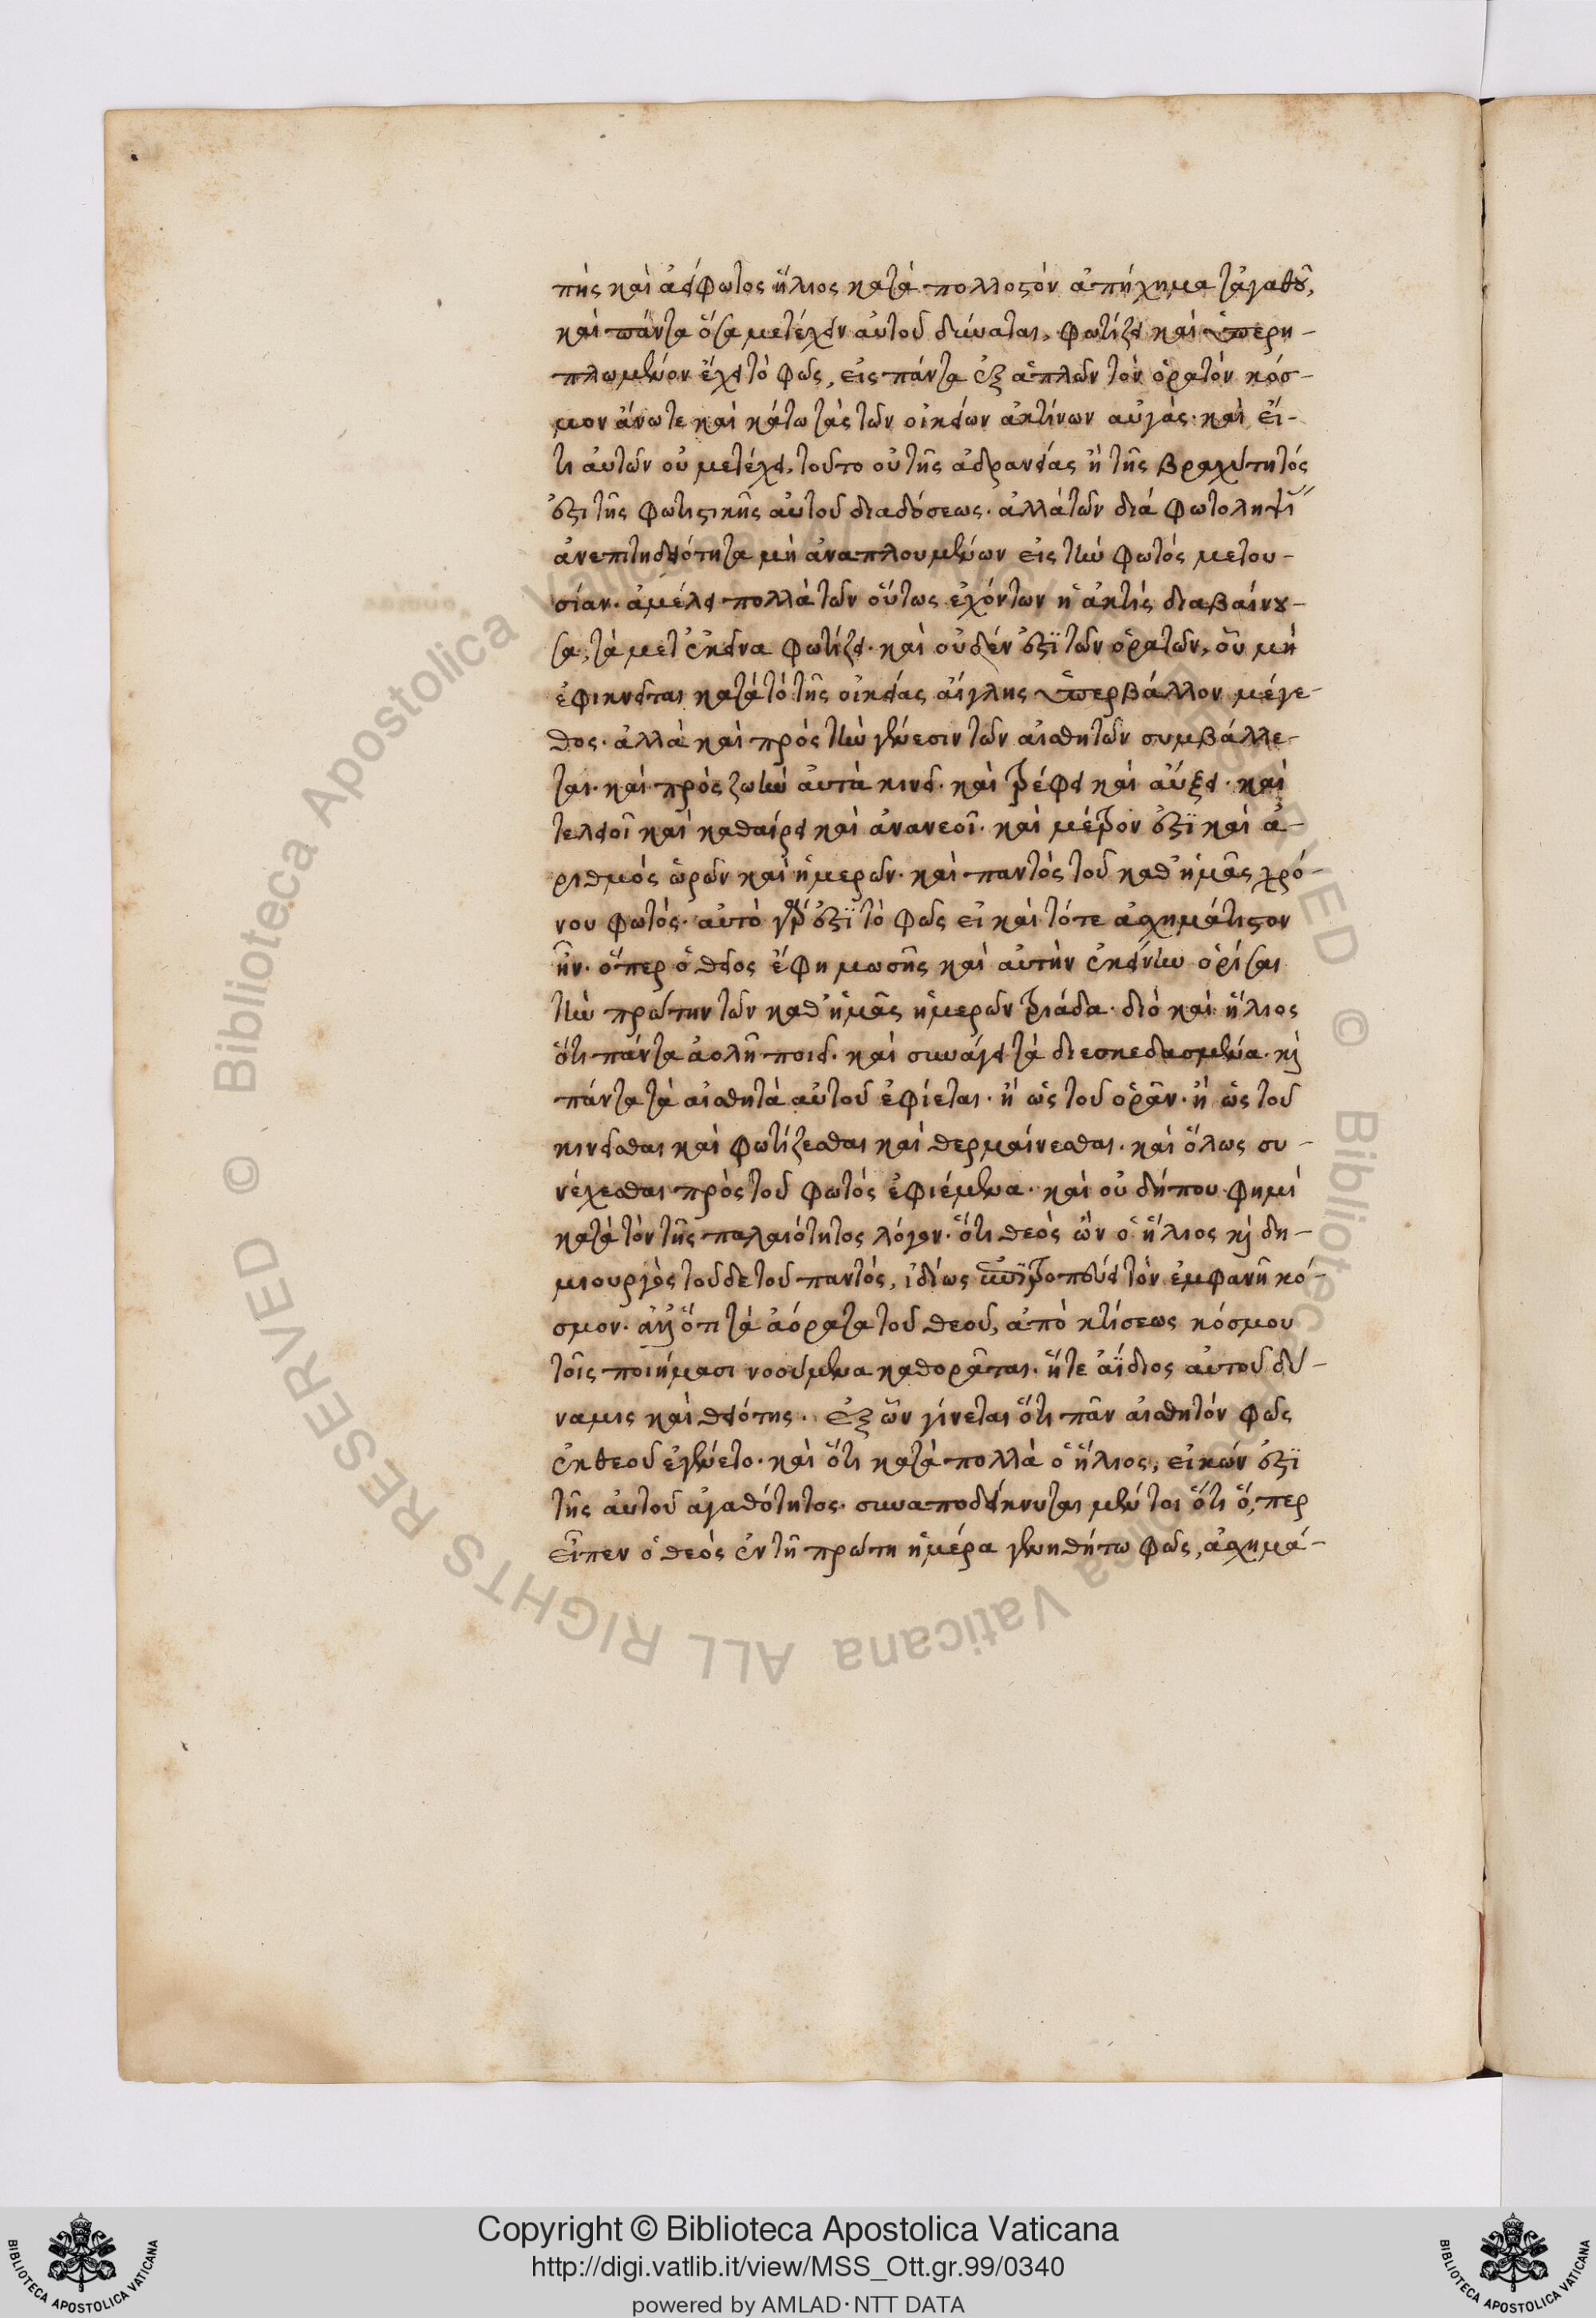 πὴς καὶ ἀείφωτος ἥλιος κατὰ πολλοστὸν ἀπήχημα τἀγαθοῦ,
καὶ πάντα ὅσα μετέχειν αὐτοῦ δύναται, φωτίζει καὶ ὑπερη-
πλωμένον ἔχει τὸ φῶς, εἰς πάντα ἐξαπλῶν τὸν ὁρατὸν κόσ-
μον ἄνωτε καὶ κάτω τὰς τῶν οἰκείων ἀκτίνων αὐγάς. καὶ εἴ-
τι αὐτῶν οὐ μετέχει, τοῦτο οὐ τῆς ἀδρανείας ἢ τῆς βραχύτητός
ἐστι τῆς φωτιστικῆς αὐτοῦ διαδόσεως. ἀλλὰ τῶν διὰ φωτοληψί
ἀνεπιτηδειότητα μὴ ἀναπλουμένων εἰς τὴν φωτὸς μετου-
σίαν. ἀμέλει πολλὰ τῶν οὕτως ἐχόντων ἡ ἀκτὶς διαβαίνου-
σα, τὰ μετ ἐκεῖνα φωτίζει. καὶ οὐδὲν ἐστὶ τῶν ὁρατῶν, οὗ μὴ
ἐφικνεῖται κατὰ τὸ τῆς οἰκείας αἴγλης ὑπερβάλλον μέγε-
θος. ἀλλὰ καὶ πρὸς τὴν γένεσιν τῶν αἰσθητῶν συμβάλλε-
ται. καὶ πρὸς ζωὴν αὐτὰ κινεῖ. καὶ τρέφει καὶ αὔξει. καὶ
τελειοῖ καὶ καθαίρει καὶ ἀνανεοῖ. καὶ μέτρον ἐστὶ καὶ ἀ-
ριθμὸς ὡρῶν καὶ ἡμερῶν. καὶ παντὸς τοῦ καθ ἡμᾶς χρό-
νου φωτός. αὐτὸ γάρ ἐστὶ τὸ φῶς εἰ καὶ τότε ἀσχημάτιστον
ἦν. ὅπερ ὁ θεῖος ἔφη μωσῆς καὶ αὐτὴν ἐκείνην ὁρίσαι
τὴν πρώτην τῶν καθ ἡμᾶς ἡμερῶν τριάδα. διὸ καὶ ἥλιος
ὅτι πάντα ἀολῆ ποιεῖ. καὶ συνάγει τὰ διεσκεδασμένα. καὶ
πάντα τὰ αἰσθητὰ αὐτοῦ ἐφίεται. ἢ ὡς τοῦ ὁρᾶν. ἢ ὡς τοῦ
κινεῖσθαι καὶ φωτίζεσθαι καὶ θερμαίνεσθαι. καὶ ὅλως συ-
νέχεσθαι πρὸς τοῦ φωτὸς ἐφιέμενα. καὶ οὐ δήπου φημὶ
κατὰ τὸν τῆς παλαιότητος λόγον. ὅτι θεὸς ὢν ὁ ἥλιος καὶ δη-
μιουργὸς τοῦδε τοῦ παντός, ἰδίως ἐπιτροπεύει τὸν ἐμφανῆ κό-
σμον. ἀλλ ὅτι τὰ ἀόρατα τοῦ θεοῦ, ἀπὸ κτίσεως κόσμου
τοῖς ποιήμασι νοούμενα καθορᾶται. ἥτε ἀΐδιος αὐτοῦ δύ-
ναμις καὶ θειότης. ἐξ ὧν γίνεται ὅτι πᾶν αἰσθητὸν φῶς
ἐκ θεοῦ ἐγένετο. καὶ ὅτι κατὰ πολλὰ ὁ ἥλιος, εἰκών ἐστὶ
τῆς αὐτοῦ ἀγαθότητος. συναποδείκνυται μέντοι ὅτι ὅ, περ
εἶπεν ὁ θεὸς ἐν τῇ πρώτη ἡμέρα γενηθήτω φῶς, ἀσχημά-
Copyright © Biblioteca Apostolica Vaticana
http://digi.vatlib.it/view/MSS_Ott.gr.99/0340
powered by AMLAD·NTT DATA